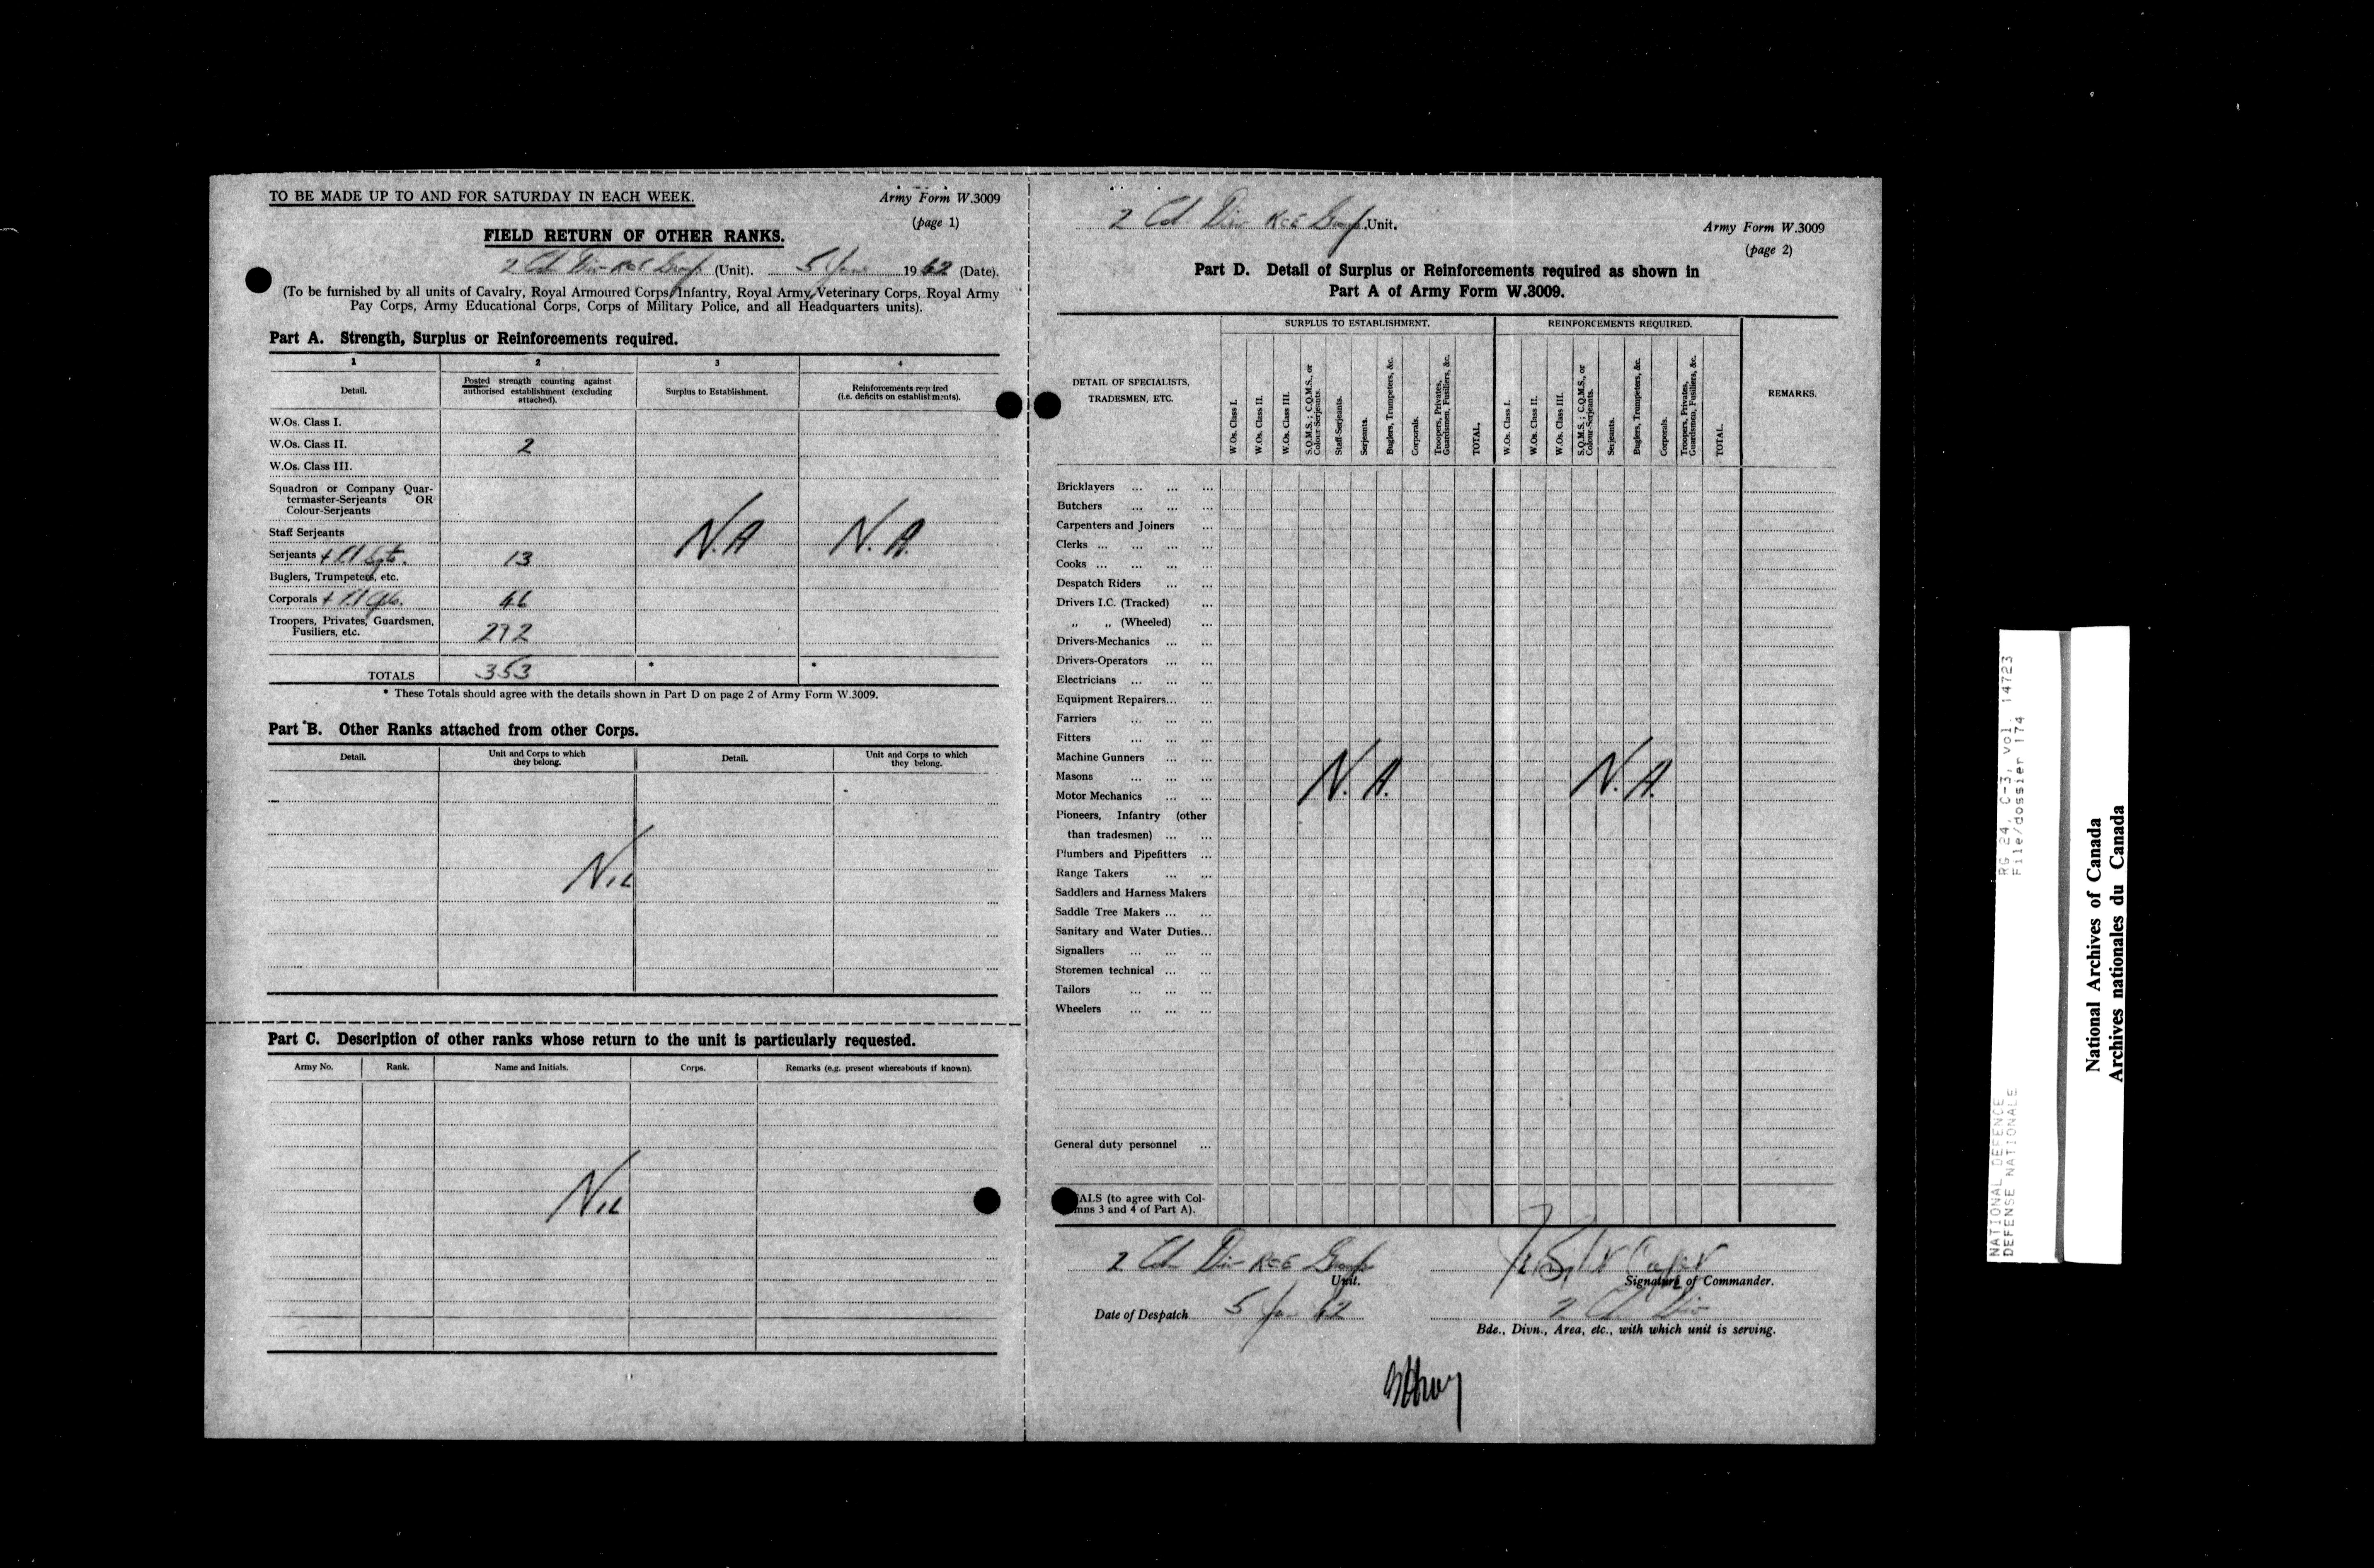 TO BE MADE UP TO AND FOR SATURDAY IN EACH WEEK.
Army Form W.3009
(page 1)
FIELD RETURN OF OTHER RANKS.
2 Cdn Div RCE Group (Unit). 5 19 62 (Date).
(To be furnished by all units of Cavalry, Royal Armoured Corps, Infantry, Royal Army Veterinary Corps, Royal Army
Pay Corps, Army Educational Corps, Corps of Military Police, and all Headquarters units).
Part A. Strength, Surplus or Reinforcements required.
1 2 3 4
Detail.
Posted strength counting against
authorised establishment (excluding
attached).
Surplus to Establishment.
Reinforcements required
(i.e. deficits on establishments).
W.Os. Class I.
W.Os. Class II. 2
W.Os. Class III.
Squadron or Company Quar-
termaster-Serjeants OR
Colour-Serjeants
Staff Serjeants
N.A N.A.
Serjeants 13
Buglers, Trumpeters, etc.
Corporals 46
Troopers, Privates, Guardsmen,
Fusiliers, etc. 292
TOTALS 353 * *
* These Totals should agree with the details shown in Part D on page 2 of Army Form W.3009.
Part B. Other Ranks attached from other Corps.
Detail.
Unit and Corps to which
they belong.
Detail.
Unit and Corps to which
they belong.
NIL
Part C. Description of other ranks whose return to the unit is particularly requested.
Army No. Rank. Name and Initials. Corps. Remarks (e.g. present whereabouts if known).
NIL
2 Cdn Div RCE Group Unit.
Army Form W.3009
(page 2)
Part D. Detail of Surplus or Reinforcements required as shown in
Part A of Army Form W.3009.
DETAIL OF SPECIALISTS,
TRADESMEN, ETC.
SURPLUS TO ESTABLISHMENT.
W.Os. Class I.
W.Os. Class II.
W.Os. Class III.
S.Q.M.S.; C.Q.M.S., or
Colour-Serjeants.
Staff-Serjeants.
Serjeants.
Buglers, Trumpeters, &c.
Corporals.
Troopers, Privates,
Guardsmen, Fusiliers, &c.
TOTAL.
REINFORCEMENTS REQUIRED.
W.Os. Class I.
W.Os. Class II.
W.Os. Class III.
S.Q.M.S.; C.Q.M.S., or
Colour-Serjeants.
Serjeants.
Buglers, Trumpeters, &c.
Corporals.
Troopers, Privates,
Guardsmen, Fusiliers, &c.
TOTAL.
REMARKS.
Bricklayers ... ... ...
Butchers ... ... ...
Carpenters and Joiners ...
Clerks ... ... ... ...
Cooks ... ... ... ...
Despatch Riders ... ...
Drivers I.C. (Tracked) ...
„ „ (Wheeled) ...
Drivers-Mechanics ... ...
Drivers-Operators ... ...
Electricians ... ... ...
Equipment Repairers... ...
Farriers ... ... ...
Fitters ... ... ...
Machine Gunners ... ...
Masons ... ... ...
N.A. N.A.
Motor Mechanics ... ...
Pioneers, Infantry (other
than tradesmen) ... ...
Plumbers and Pipefitters ...
Range Takers ... ...
Saddlers and Harness Makers
Saddle Tree Makers ... ...
Sanitary and Water Duties...
Signallers ... ... ...
Storemen technical ... ...
Tailors ... ... ...
Wheelers ... ... ...
General duty personnel ...
ALS (to agree with Col-
mns 3 and 4 of Part A).
2 Cdn Div RCE Group
Unit.
Signature of Commander.
Date of Despatch 5 62
2 Cdn Div
Bde., Divn., Area, etc., with which unit is serving.
NATIONAL DEFENCE RG 24, C-3, vol. 14723
DEFENSE NATIONALE File/dossier 174
National Archives of Canada
Archives nationales du Canada